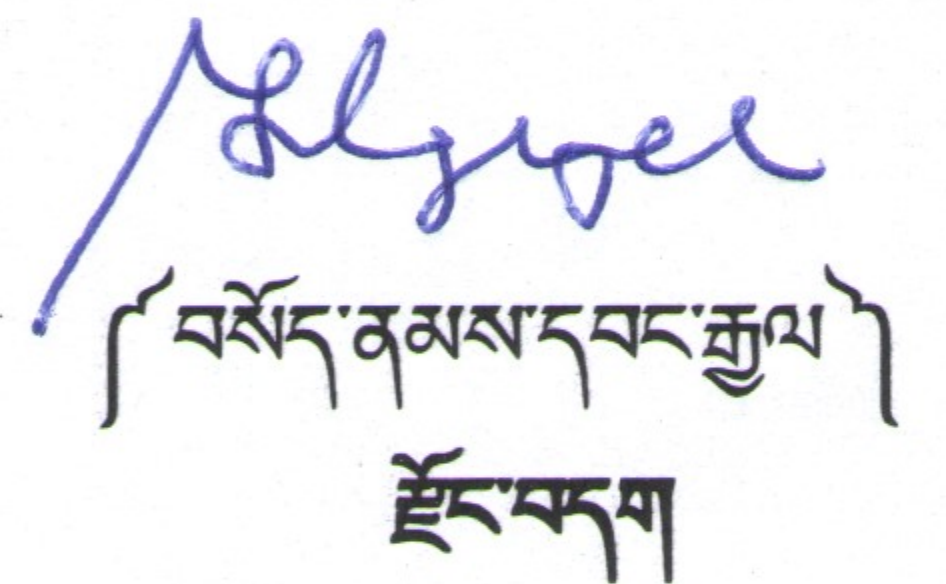 ༼བསོད་ནམས་དབང་རྒྱལ༽
རྫོང་བདག